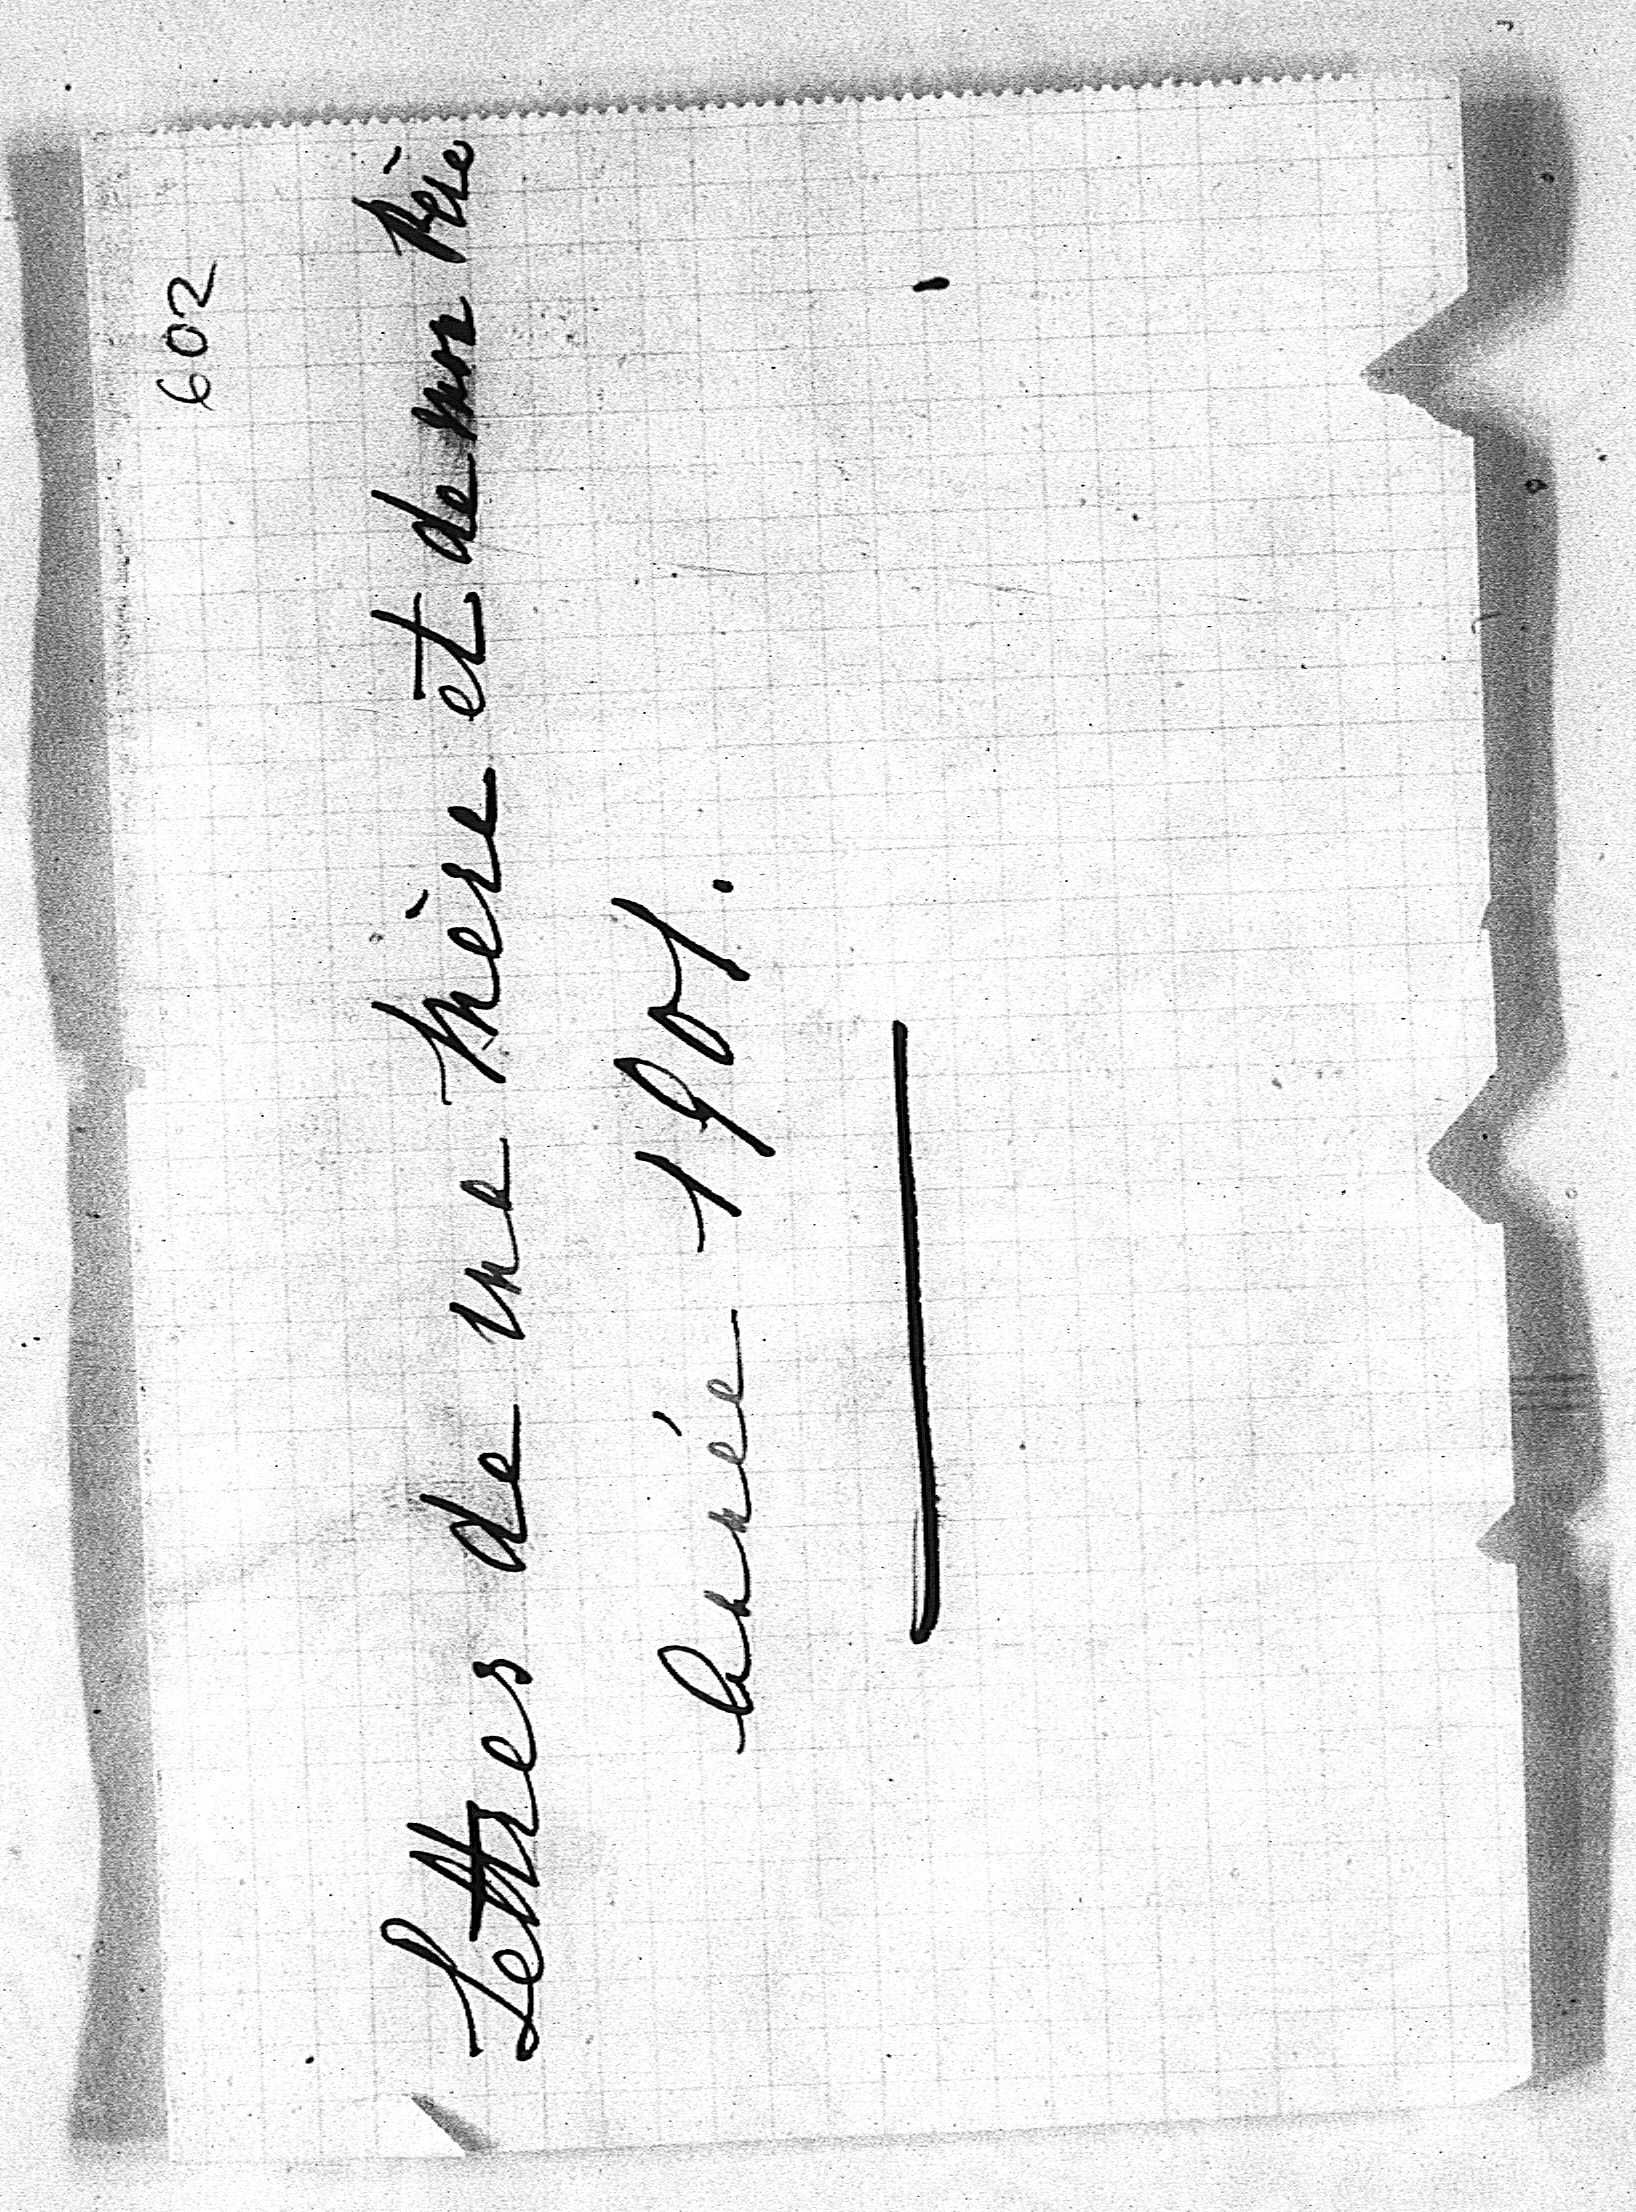 602
Lettres de ma Mère et de mon Père
Année 1901.